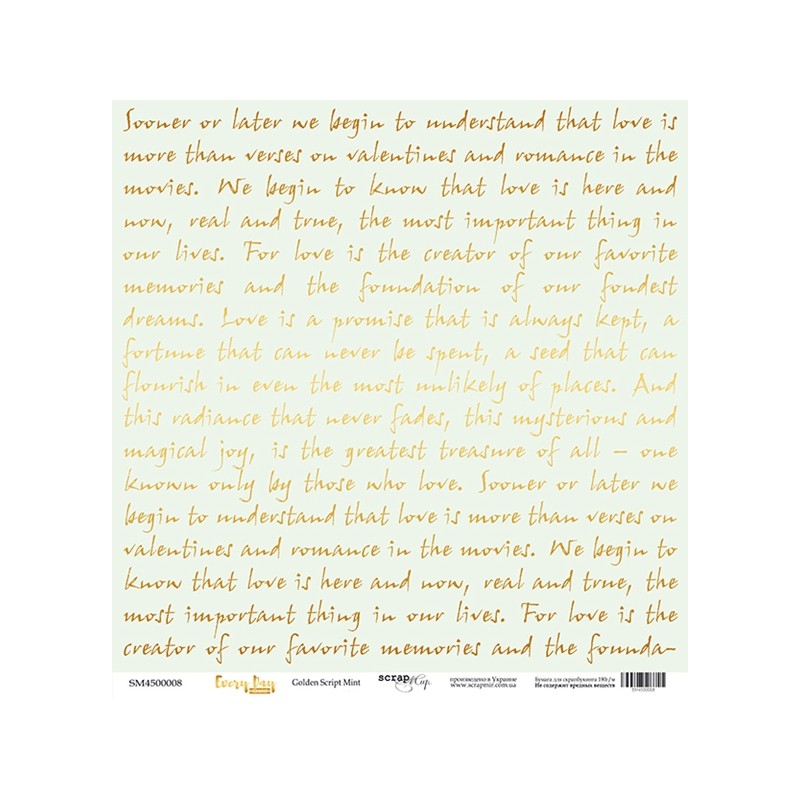 Sooner or later we begin to understand that love is
more than verses on valentines and romance in the
movies. We begin to know that love is here and
now, real and true, the most important thing in
our lives. For love is the creator of our favorite
memories and the foundation of our fondest
dreams. Love is a promise that is always kept, a
fortune that can never be spent, a seed that can
flourish in even the most unlikely of places. And
this radiance that never fades, this mysterious and
magical joy, is the greatest treasure of all – one
known only by those who love. Sooner or later we
begin to understand that love is more than verses on
valentines and romance in the movies. We begin to
know that love is here and now, real and true, the
most important thing in our lives. For love is the
creator of our favorite memories and the founda-
SM4500008 Every Day Golden Script Mint scrapМир произведено в Украине Бумага для скрапбукинга 190г/м
www.scrapmir.com.ua Не содержит вредных веществ SM4500008